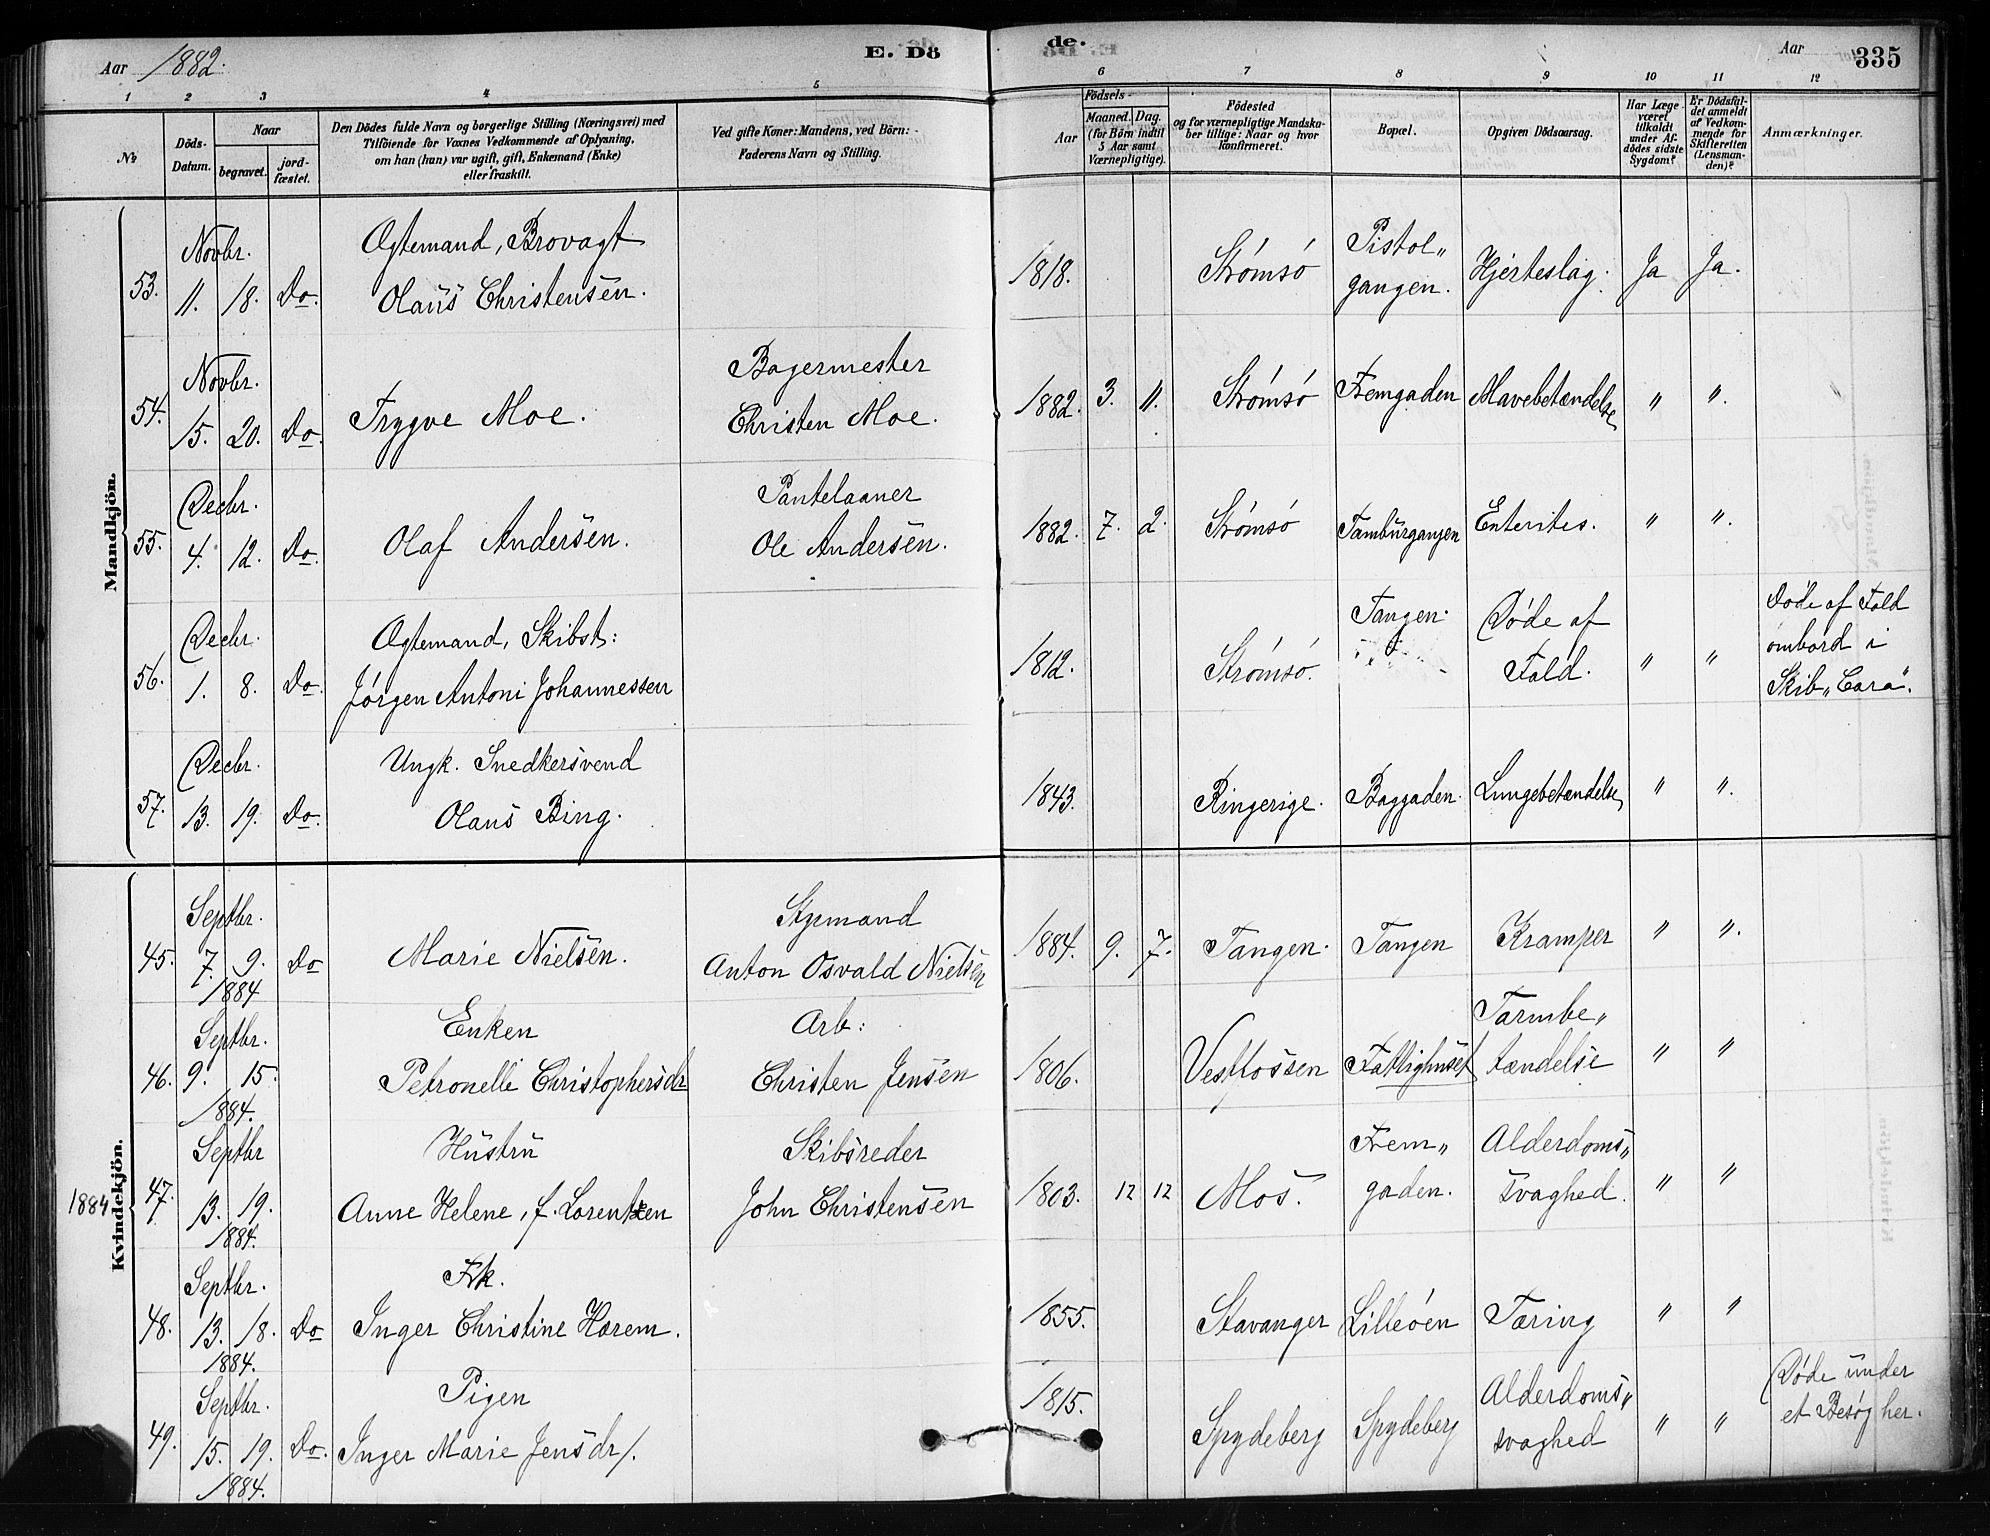 Aar 1882.
E. Dö
de.
Aar
335
1 2 3 4 5 6 7 8 9 10 11 12
No
Döds-Datum.
Naar
begravet.
jord-fæstet.
Den Dödes fulde Navn og borgerlige Stilling (Næringsvei) med
Tilföiende for Voxnes Vedkommende af Oplysning,
om han (hun) var ugift, gift, Enkemand (Enke)
eller fraskilt.
Ved gifte Koner: Mandens, ved Börn:
Faderens Navn og Stilling.
Födsels-
Aar
Maaned. Dag.
(for Börn indtil
5 Aar samt
Værnepligtige).
Födested
og for værnepligtige Mandska-
ber tillige: Naar og hvor
konfirmeret.
Bopæl.
Opgiven Dödsaarsag.
Har Læge
været
tilkaldt
under Af-
dödes sidste
Sygdom?
Er Dödsfal-
det anmeldt
af Vedkom-
mende for
Skifteretten
(Lensman-
den)?
Anmærkninger.
Mandkjön.
53. Novbr. 11. 18. Do. Ægtemand, Brovagt
Olaus Christensen. 1818. Strømsø Pistol„
gangen. Hjerteslag. Ja Ja.
54. Novbr. 15. 20. Do. Trygve Moe. Bagermester
Christen Moe. 1882. 3. 11. Strømsø Fremgaden Mavebetændelse „ „.
55. Decbr. 4. 12. Do. Olaf Andersen. Pantelaaner
Ole Andersen. 1882. 7. 2. Strømsø Tamburgangen Enterites. „ „.
56. Decbr. 1. 8. Do. Ægtemand, Skibst:
Jørgen Antoni Johannessen 1812. Strømsø. Tangen. Døde af
Fald. „ „ Døde af Fald
ombord i
Skib „Cara".
57. Decbr. 13. 19. Do. Ungk. Snedkersvend
Olaus Bing. 1843. Ringerige. Baggaden. Lungebetændelse „ „.
Kvindekjön.
45. Septbr. 7. 9. Do
1884 Marie Nielsen. Styrmand
Anton Osvald Nielsen 1884. 9. 7. Tangen. Tangen Kramper „ „.
46. Septbr. 9. 15.
1884. Enken
Petronelle Christophersdr Arb:
Christen Jensen 1806. Vestfossen Fattighuset Tarmbe„
tændelse „ „
1884 47. Septbr 13. 19.
1884. Hustru
Anne Helene, f. Lorentzen Skibsreder
John Christensen 1803. 12 12 Mos. Frem„
gaden. Alderdoms„
svaghed. „ „
48. Septbr. 13. 18. Do
1884. Frk.
Inger Christine Harem. 1855. Stavanger Lilleøen Tæring „ „
49. Septbr. 15. 19. Do.
1884. Pigen
Inger Marie Jensdr/. 1815. Spydeberg Spydeberg Alderdoms„
svaghed „ „ Døde under
et Besøg her.